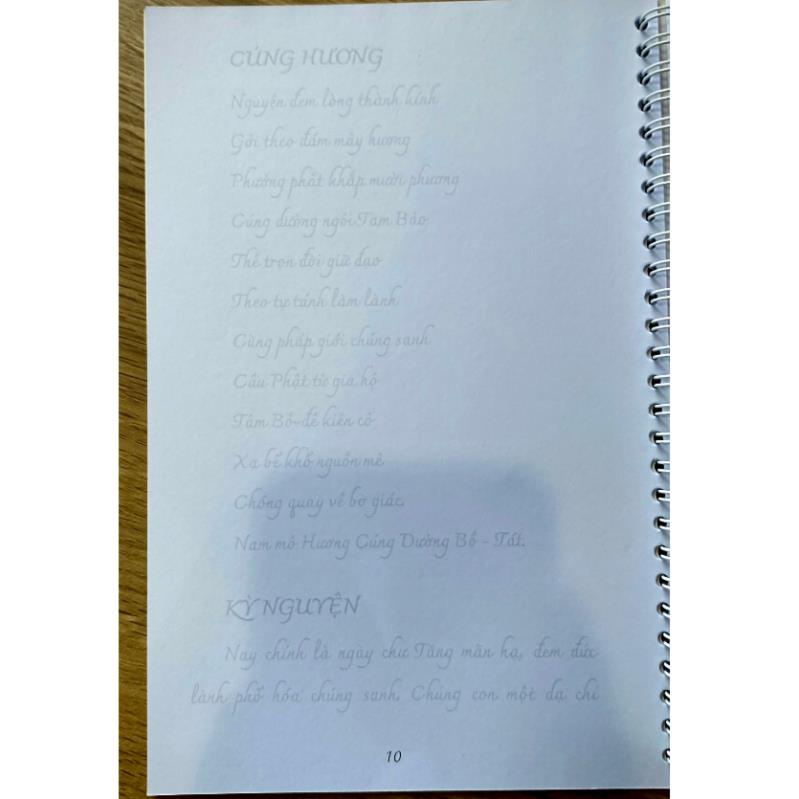 CÚNG HƯƠNG
Nguyện đem lòng thành kính
Gởi theo đám mây hương
Phưởng phất khắp mười phương
Cúng dường ngôi Tam Bảo
Thề trọn đời giữ đạo
Theo tự tánh làm lành
Cùng pháp giới chúng sanh
Cầu Phật từ gia hộ
Tâm Bồ-đề kiên cố
Xa bể khổ nguồn mê
Chóng quay về bờ giác.
Nam mô Hương Cúng Dường Bồ - Tát.
KỲ NGUYỆN
Nay chính là ngày chư Tăng mãn hạ, đem đức
lành phổ hóa chúng sanh. Chúng con một dạ chí
10